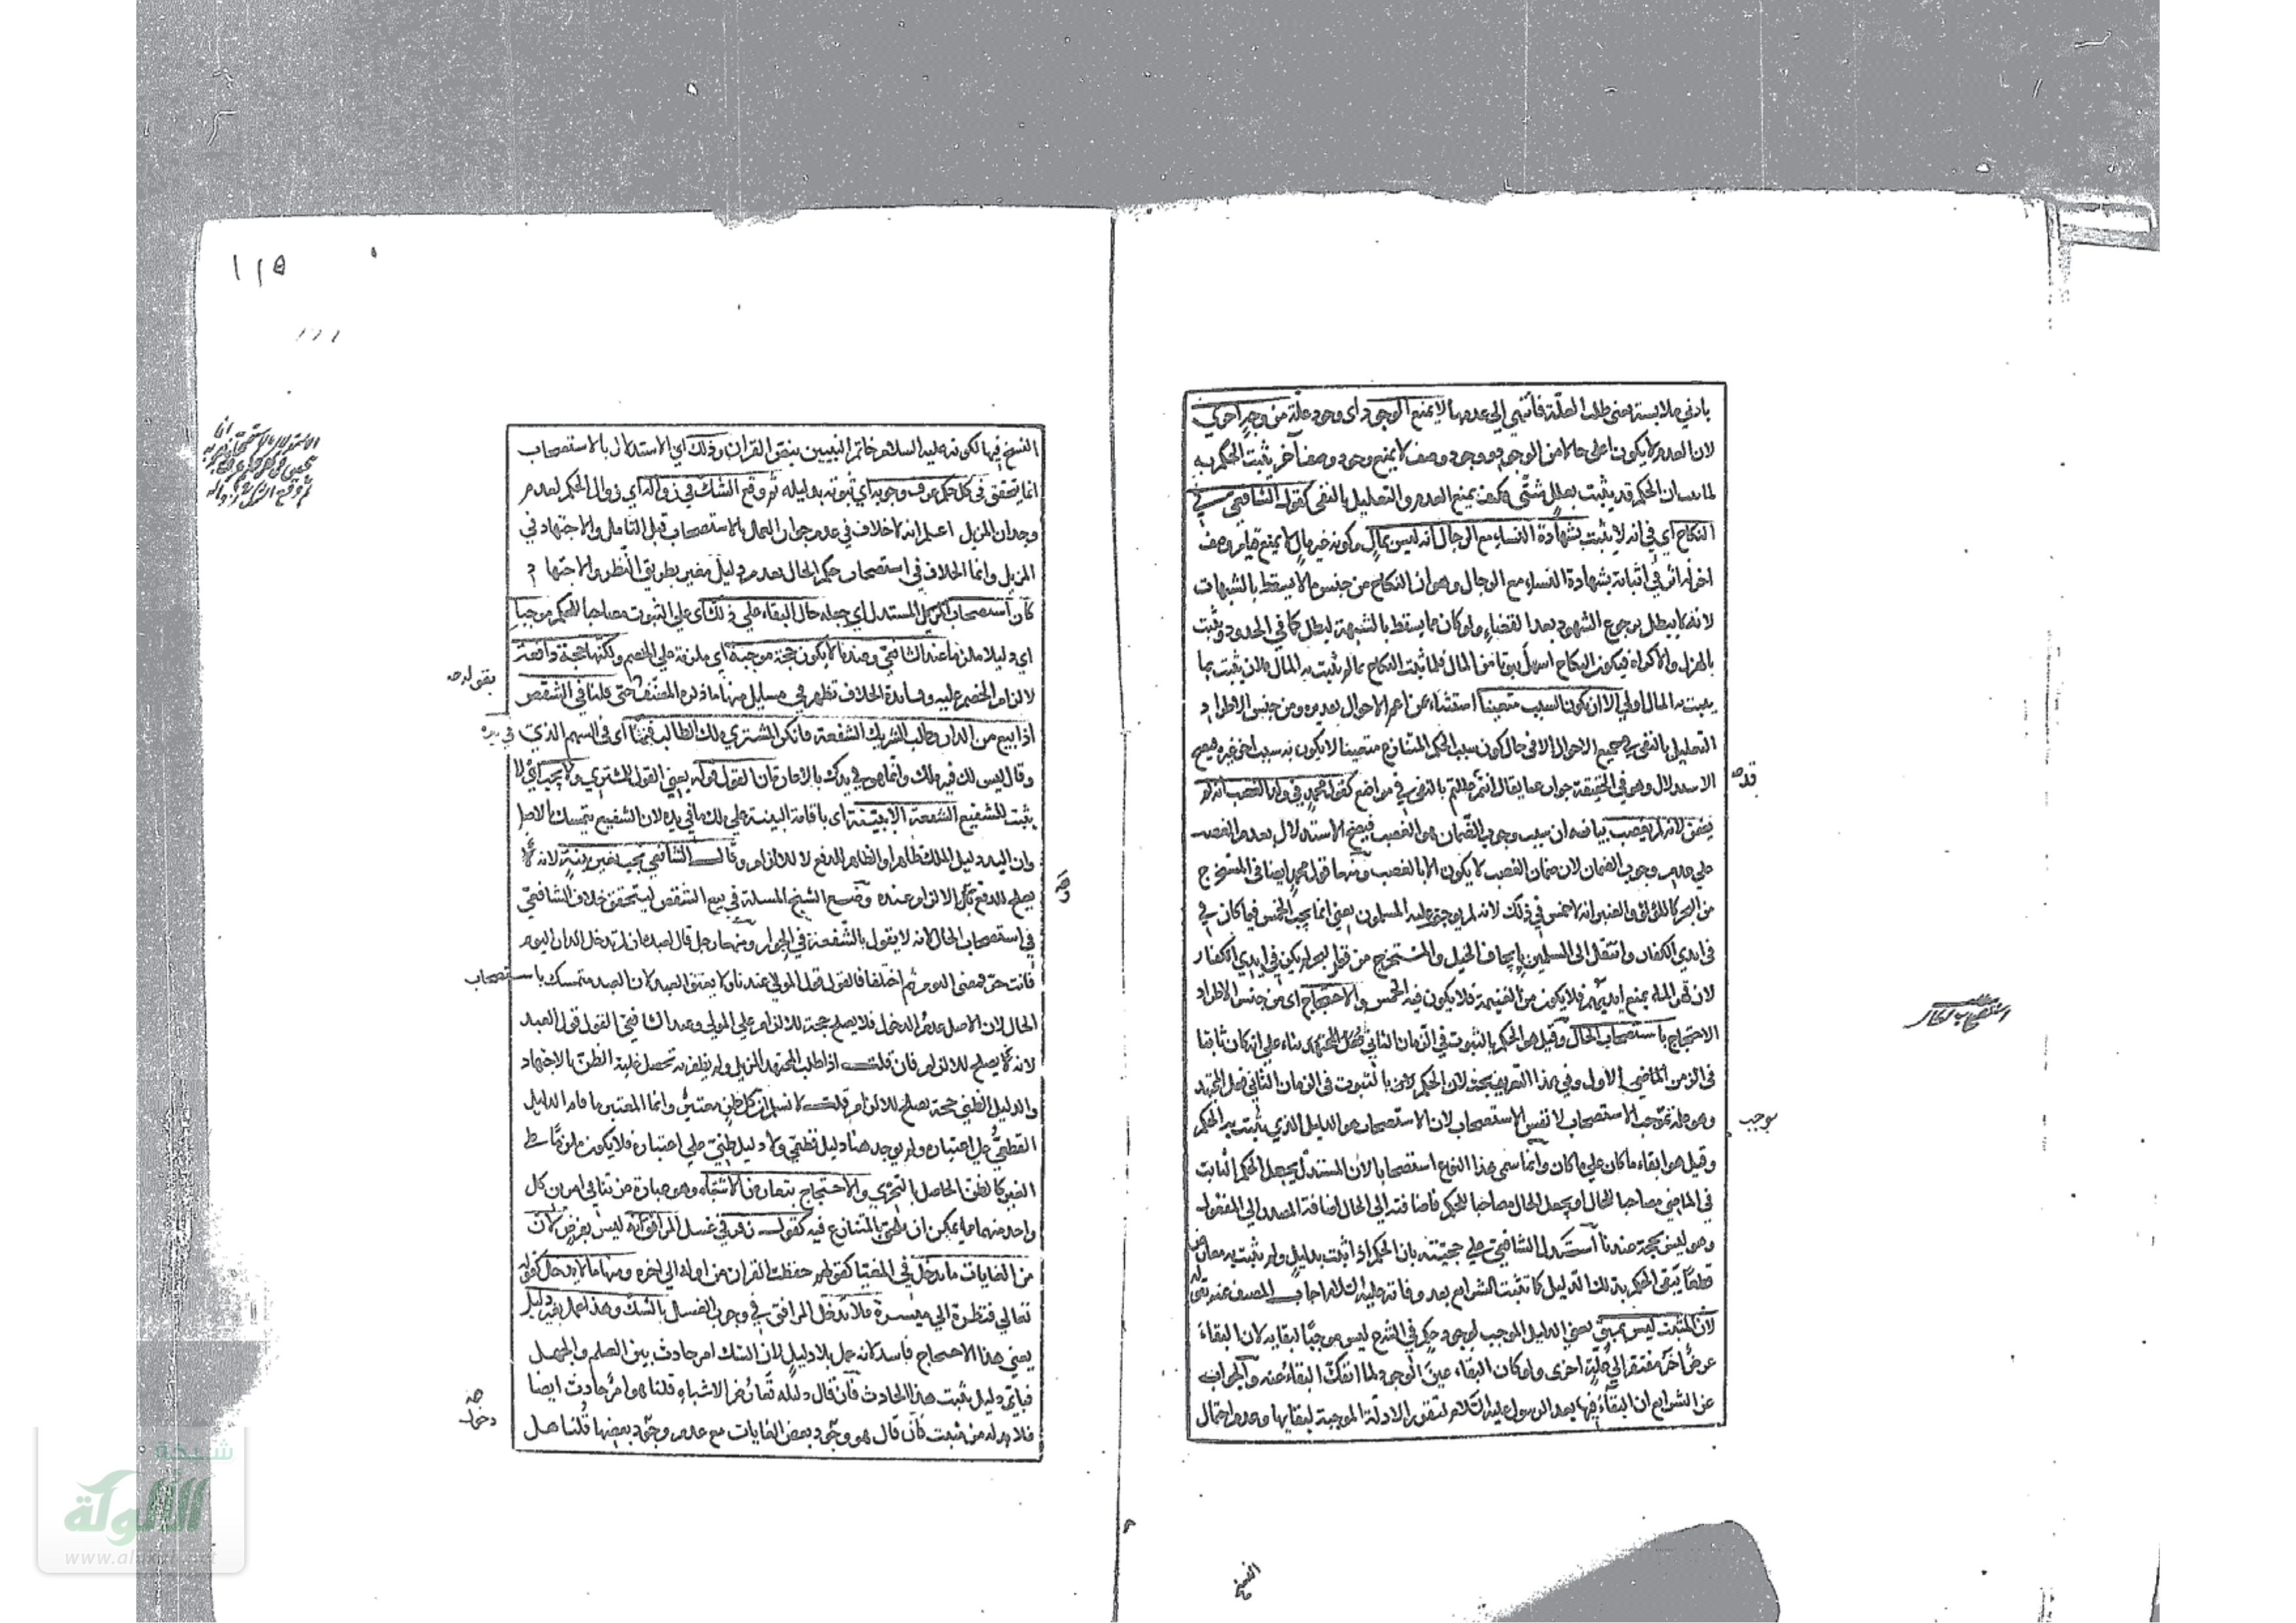 بادني ملابسة يعني طلب العلة فانتهى الى عدمها لا يمنع الوجود اى وجود علة من وجه اخرى
لان العدم لا يكون اعلى حالا من الوجود ووجود وصف لا يمنع وجود وصف آخر يثبت الحكم به
لما بينا ان الحكم قد يثبت بعلل شتى فكيف يمنع العدم والتعليل بالنفى كقول الشافعي في
النكاح اي في انه لا يثبت بشهادة النساء مع الرجال انه ليس بمال وكونه غير مال لا يمنع قيام وصف
اخر له اثر في اثباته بشهادة النساء مع الرجال وهو ان النكاح من جنس ما لا يسقط بالشبهات
لانه لا يبطل برجوع الشهود بعد القضاء ولو كان مما يسقط بالشبهة لبطل كما في الحدود ويثبت
بالهزل والاكراه فيكون النكاح اسهل ثبوتا من المال فلما ثبت النكاح بما لم يثبت به المال فلان يثبت بما
يثبت به المال اولى الا ان يكون السبب متعينا استثناء من اعم الاحوال يعني ومن جنس الاطراد
التعليل بالنفى في جميع الاحوال الا في حال كون سبب الحكم المتنازع متعينا لا يكون له سبب اخر غيره فيصح
الاستدلال وهو في الحقيقة جواب عما يقال انتم عللتم بالنفى في مواضع كقول محمد في ولد الغصب انه لم
يضمن لانه لم يغصب بيانه ان سبب وجوب الضمان هو الغصب فيصح الاستدلال بعدم الغصب
على عدم وجوب الضمان لان ضمان الغصب لا يكون الا بالغصب ومنها قول محمد ايضا في المستخرج
من البحر كاللؤلؤ والعنبر انه لا خمس في ذلك لانه لم يوجف عليه المسلمون يعني انما يجب الخمس فيما كان في
في ايدي الكفار وانتقل الى المسلمين بايجاف الخيل والمستخرج من قعر البحر لم يكن في ايدي الكفار
لان قهر الماء يمنع ايديهم فلا يكون من الغنيمة فلا يكون فيه الخمس والاحتجاج اى من جنس الاطراد
الاحتجاج باستصحاب الحال وقيل هو الحكم بالثبوت في الزمان الثاني بناء على انه كان ثابتا
في الزمن الماضي الاول وفي هذا التعريف بحث لان الحكم بالثبوت في الزمان الثاني فعل المجتهد
وهو موجب الاستصحاب لا نفس الاستصحاب لان الاستصحاب هو الدليل الذي يثبت به الحكم
وقيل هو ابقاء ما كان على ما كان وانما سمى هذا النوع استصحابا لان المستدل يجعل الحكم الثابت
في الماضي مصاحبا للحال او يجعل الحال مصاحبا للحكم فاضافته الى الحال اضافة المصدر الى المفعول
وهو ليس بحجة عندنا استدل الشافعي على حجيته بان الحكم اذا ثبت بدليل ولم يثبت به معارض
قطعا يبقى الحكم بذلك الدليل كما تثبت الشرايع بعد وفاته عليه السلام اجاب المصنف عنه بقوله
لان المثبت ليس بمبق يعني الدليل الموجب لوجود حكم في الشرع ليس موجبا لبقايه لان البقاء
عرض آخر مفتقر الى علة اخرى ولو كان البقاء عين الوجود لما انفك البقاء عنه والجواب
عن الشرايع ان البقاء فيها بعد الرسول عليه السلام لتقرر الادلة الموجبة لبقايها وعدم احتمال
قد
موجب
النسخ
١١٥
النسخ فيها لكونه عليه السلام خاتم النبيين بنص القران وذلك اي الاستدلال بالاستصحاب
انما يتحقق في كل حكم عرف وجوبه اي ثبوته بدليله ثم وقع الشك في زواله اي زوال الحكم لعدم
وجدان المزيل اعلم انه لا خلاف في عدم جواز العمل بالاستصحاب قبل التامل والاجتهاد في
المزيل وانما الخلاف في استصحاب حكم الحال بعدم دليل مغير بطريق النظر والاجتهاد
كان استصحاب المستدل اي جعله حال البقاء على ذلك اى على الثبوت مصاحبا للحكم موجبا
اي دليلا ملزما عند الشافعي وعندنا لا يكون حجة موجبة اي ملزمة على الخصم ولكنها حجة دافعة
لالزام الخصم عليه وفائدة الخلاف تظهر في مسايل منها ما ذكره المصنف حتى قلنا في الشقص
اذا بيع من الدار وطلب الشريك الشفعة فانكر المشتري ملك الطالب فيما اى في السهم الذي في يده
وقال ليس لك فيه ملك وانما هو في يدك بالاعارة ان القول قوله يعني القول للمشترى ولا يجب اي لا
يثبت للشفيع الشفعة الا ببينة اى باقامة البينة على ملك ما في يده لان الشفيع يتمسك بالاصل
وان اليد دليل الملك ظاهرا والظاهر للدفع لا للالزام وقال الشافعي يجب بغير بينة لانه
يصلح للدفع والالزام عنده وضع الشيخ المسئلة في بيع الشقص ليتحقق خلاف الشافعي
في استصحاب الحال لانه لا يقول بالشفعة في الجوار ومنها رجل قال لعبده ان لم تدخل الدار اليوم
فانت حر فمضى اليوم ثم اختلفا فالقول قول المولى عندنا ولا يعتق العبد لان العبد متمسك باستصحاب
الحال لان الاصل عدم الدخول فلا يصلح حجة للالزام على المولى وعند الشافعي القول قول العبد
لانه يصلح للالزام فان قلت اذا طلب المجتهد المزيل ولم يظفر به تحصل غلبة الظن بالاجتهاد
والدليل الظني حجة يصلح للالزام قلت لا نسلم ان كل ظن معتبر وانما المعتبر ما قام الدليل
القطعي على اعتباره ولم يوجد هنا دليل قطعي ولا دليل ظني على اعتباره فلا يكون ملزما على
الغير كالظن الحاصل بالتحري والاحتجاج بتعارض الاشباه وهو عبارة عن تنافي امرين كل
واحد منهما مما يمكن ان يلحق به المتنازع فيه كقول زفر في غسل المرافق انه ليس بفرض لان
من الغايات ما يدخل في المغيا كقولهم حفظت القران من اوله الى اخره ومنها ما لا يدخل كقوله
تعالى فنظرة الى ميسرة فلا تدخل المرافق في وجوب الغسل بالشك وهذا عمل بغير دليل
يعني هذا الاحتجاج فاسد لانه عمل بلا دليل لان الشك امر حادث بين العلم والجهل
فباي دليل يثبت هذا الحادث فان قال دليله تعارض الاشباه قلنا هو امر حادث ايضا
فلا بد له من مثبت فان قال هو وجود بعض الغايات مع عدم وجود بعضها قلنا هل
بقوله
دخول